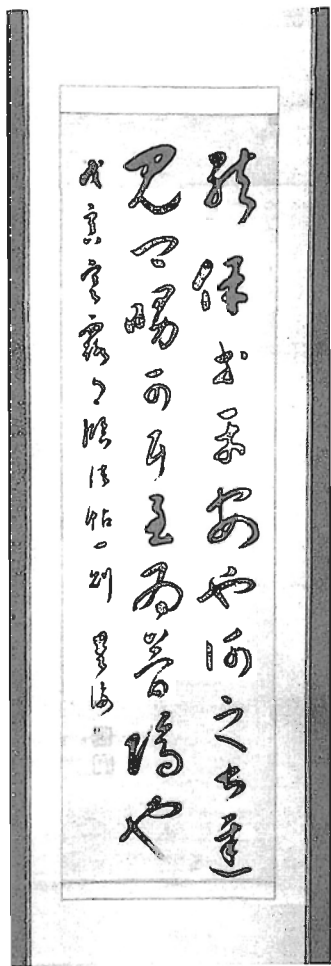 龍保等平安也謝之甚遲
見卿舅可耳至為簡隔也
戊寅寒露日臨法帖一則 墨海